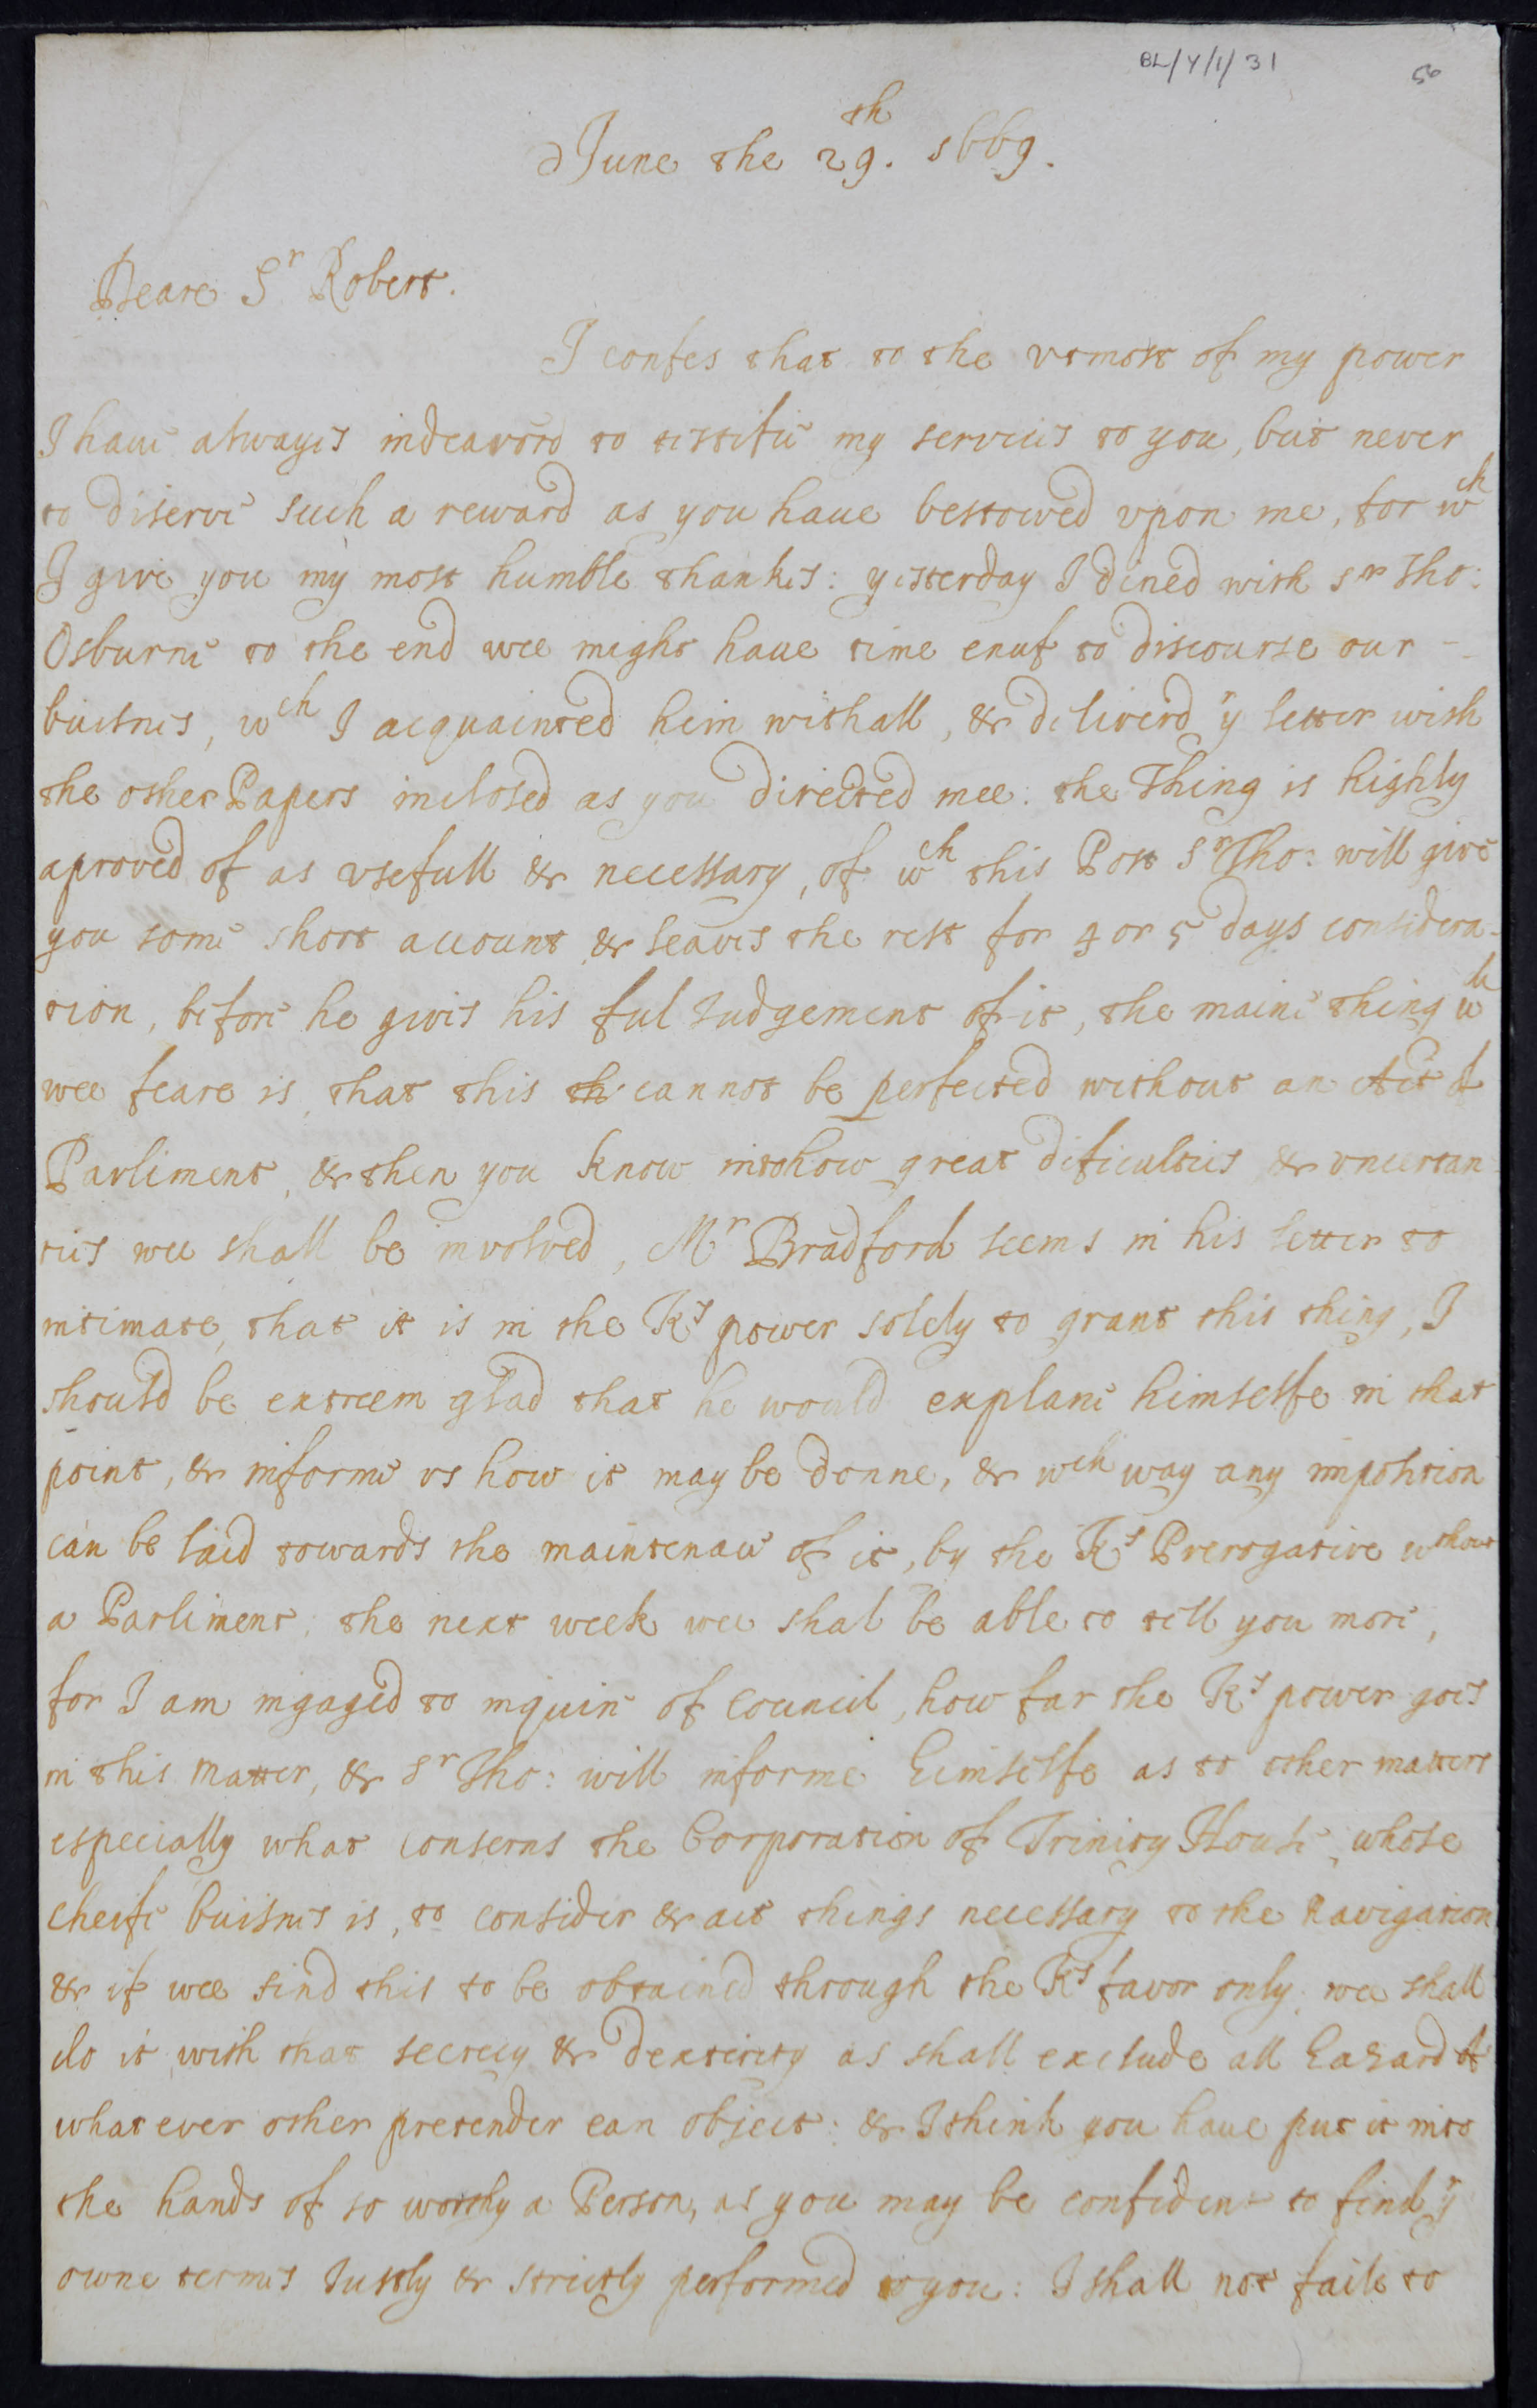 BL/Y/1/31
56
June the 29th. 1669.
Deare Sr Robert.
I confes that to the vtmost of my power
I haue alwayes indeavord to testifie my services to you, but never
to diserve such a reward as you haue bestowed vpon me, for wch
I give you my most humble thankes: yesterday I dined with Sr Tho:
Osburne to the end wee might haue time enuf to discourse our -
buisnes, wch I acquainted him withall, & deliverd yr letter with
the other Papers inclosed as you directed mee: the Thing is highly
aproved of as vsefull & necessary, of wch this Post Sr Tho: will give
you some short account & leaves the rest for 4 or 5 days considera-
tion, before he gives his ful Judgement of it, the maine thing wch
wee feare is, that this cannot be perfected without an Act of
Parliment, & then you know intohow great dificulties & uncertan-
ties wee shall be involved, Mr Bradford seems in his letter to
intimate, that it is in the Ks power solely to grant this thing, I
should be extreem glad that he would explane himselfe in that
point, & informe vs how it may be donne, & wch way any imposition
can be laid towards the maintenace of it, by the Ks Prerogative wthout
a Parliment: the next week wee shal be able to tell you more,
for I am ingaged to inquire of Councel, how far the Ks power goes
in this matter, & Sr Tho: will informe himselfe as to other matters
especially what conserns the Corporation of Trinity House, whose
cheife buisnes is, to consider & act things necessary to the Navigation
& if wee find this to be obtained through the Ks favor only, wee shall
do it with that secrecy & dexterity as shall exclude all hazard of
what ever other pretender can object: & I think you haue put it into
the hands of so worthy a Person, as you may be confident to find yr
owne termes Justly & strictly performed to you: I shall not faile to